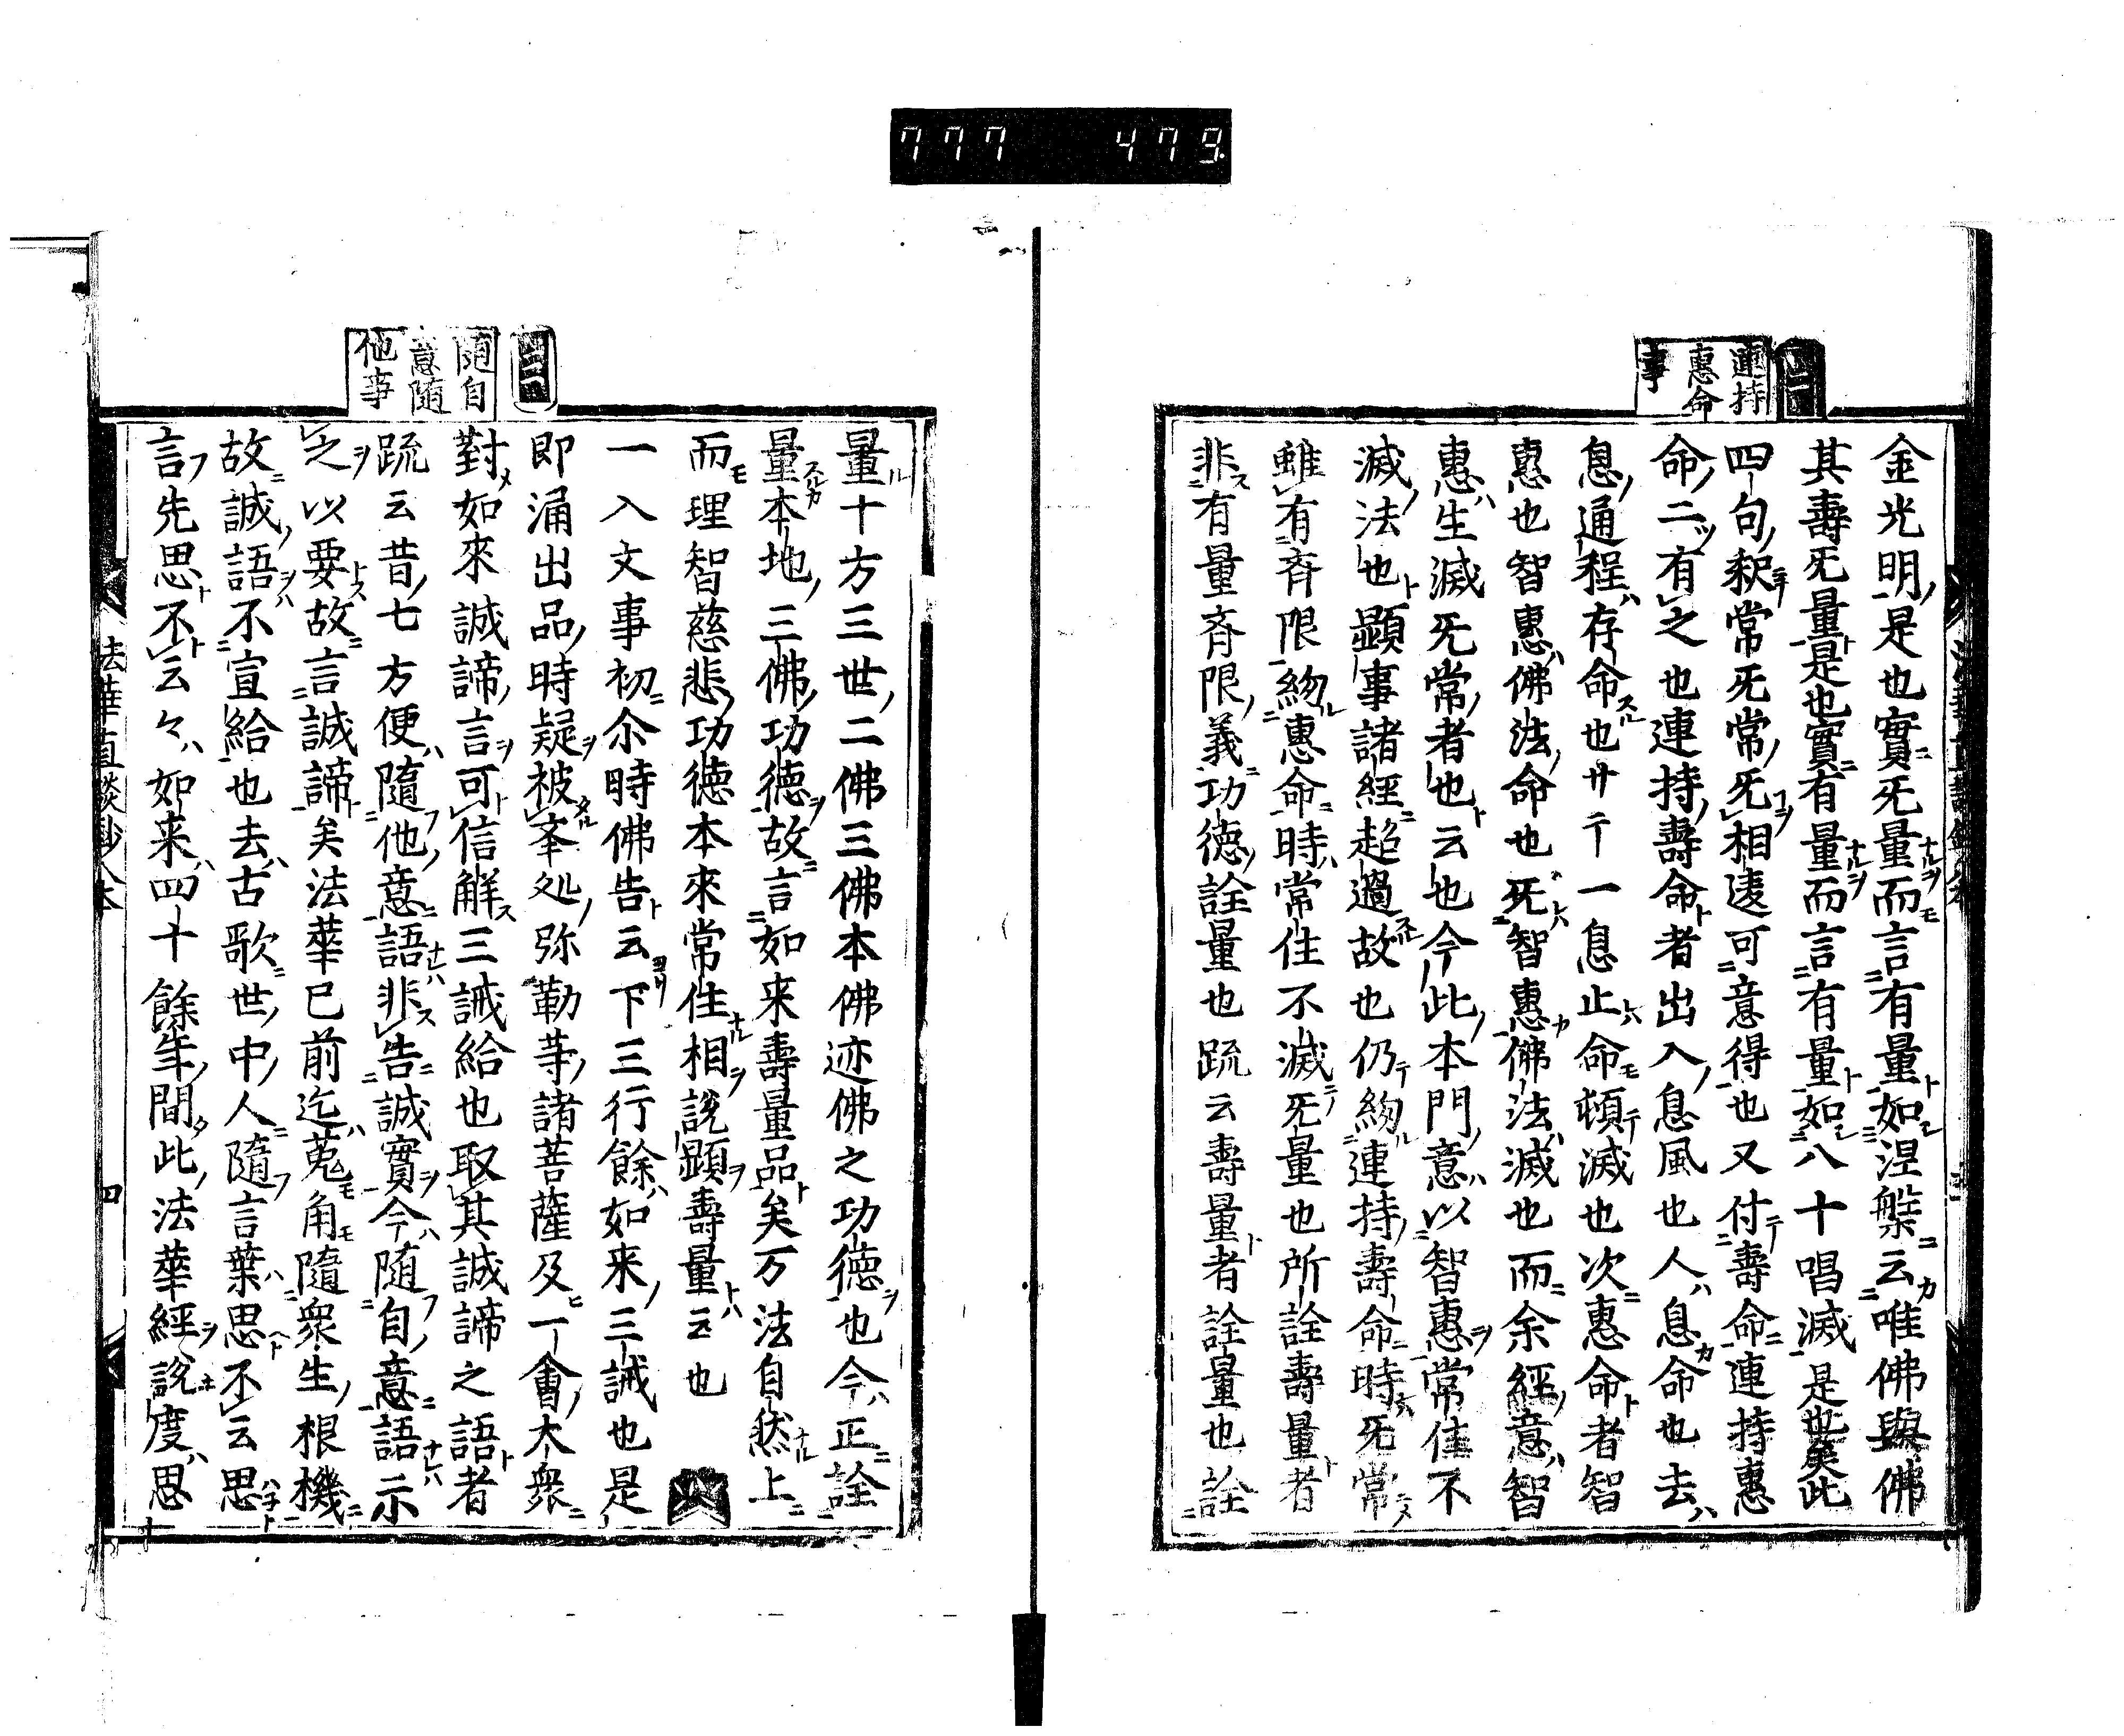 777 479
二
連持
惠命
事
金光明是也實旡量而言有量如涅槃云唯佛與佛
其壽旡量是也實有量而言有量如八十唱滅是也矣此
四句釈常旡常旡相違可意得也又付壽命連持惠
命二有之也連持壽命者出入息風也人息命也去
息通程存命也廿一息止命頓滅也次惠命者智
惠也智惠佛法命也旡智惠佛法滅也而余經意智
惠生滅旡常者也云也今此本門意以智惠常住不
滅法也顕事諸經超過故也仍約連持壽命時旡常
雖有斉限約惠命時常住不滅旡量也所詮壽量者
非有量斉限義功徳詮量也疏云壽量者詮量也詮
量十方三世二佛三佛本佛迹佛之功徳也今正詮
量本地三佛功徳故言如来壽量品矣万法自然上
而理智慈悲功徳本來常住相説顕壽量云也
三
隨自
意隨
他事
一入文事初尒時佛告云下三行餘如来三誡也是
即涌出品時疑被挙処弥勒等諸菩薩及一會大衆
對如來誠諦言可信解三誡給也取其誠諦之語者
疏云昔七方便隨他意語非告誠實今随自意語示
之以要故言誠諦矣法華已前迄蒐角隨衆生根機
故誠語不宣給也去古歌世中人隨言葉思不云思
言先思不云々如来四十餘年間此法華經説度思
法華直談鈔八本
四